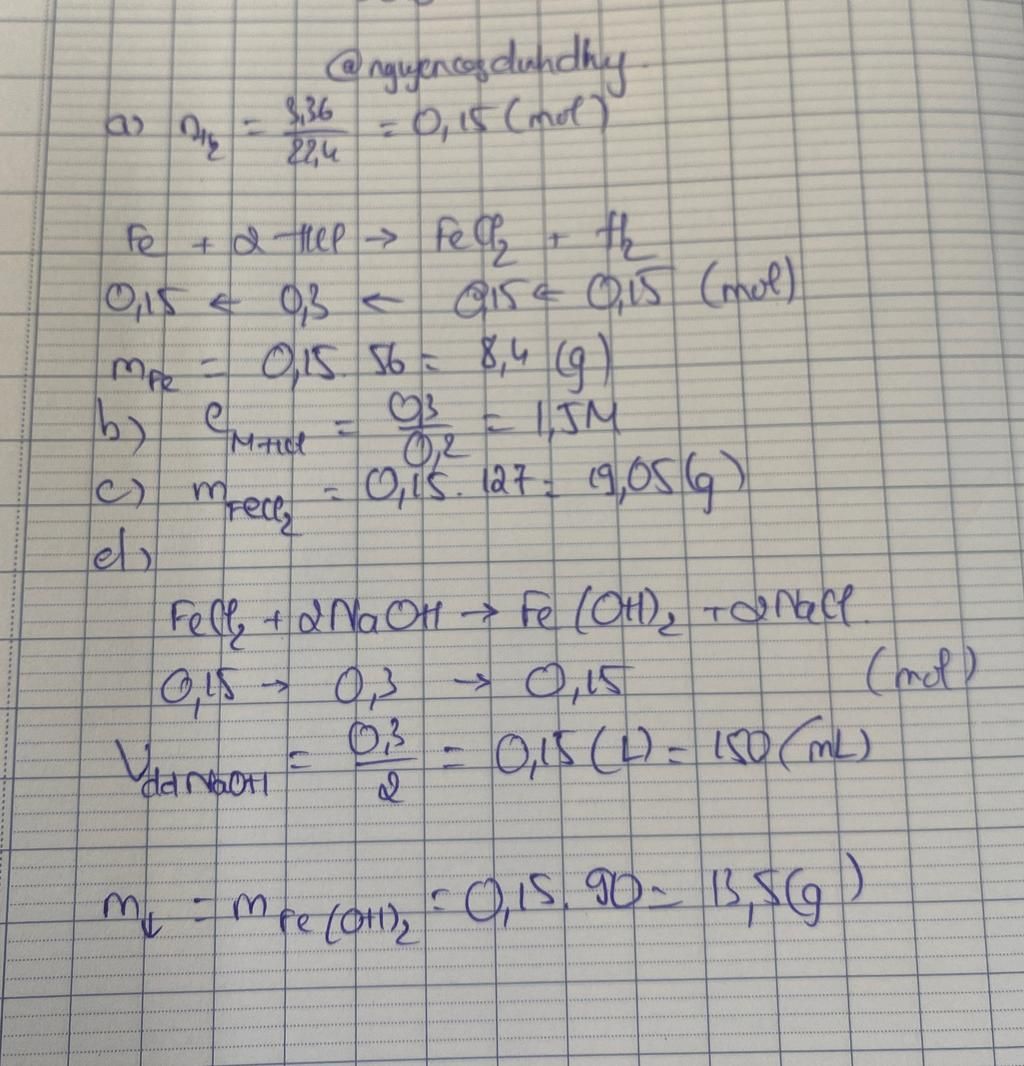 @nguyencogduhdhy.
a) n_H₂ = 3,36/22,4 = 0,15 (mol)
Fe + 2HCl → FeCl₂ + H₂
0,15 ← 0,3 ← 0,15 ← 0,15 (mol)
m_Fe = 0,15. 56 = 8,4 (g)
b) C_M HCl = 0,3/0,2 = 1,5M
c) m_FeCl₂ = 0,15. 127 = 19,05 (g)
d)
FeCl₂ + 2NaOH → Fe(OH)₂ + 2NaCl.
0,15 → 0,3 → 0,15 (mol)
V_dd NaOH = 0,3/2 = 0,15 (L) = 150 (mL)
m↓ = m_Fe(OH)₂ = 0,15. 90 = 13,5 (g)